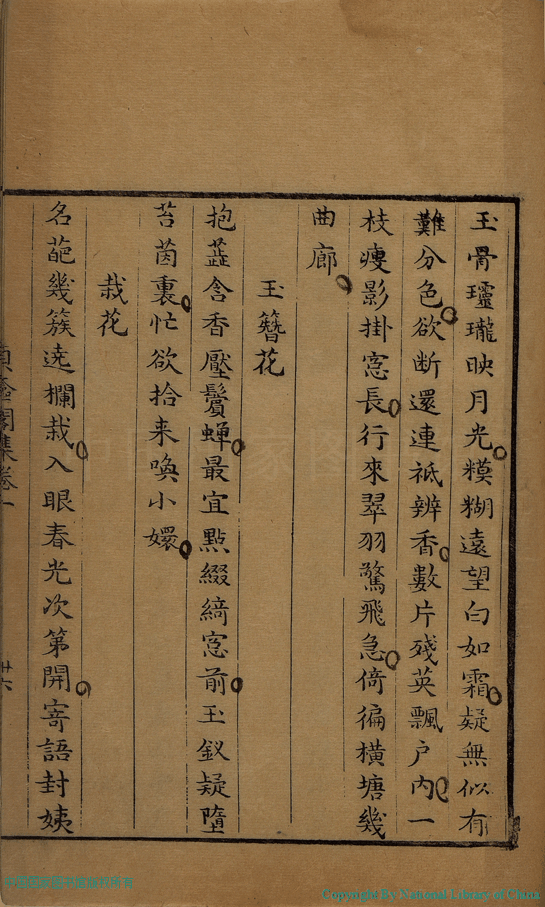 玉骨瓏瓏映月光糢糊遠望白如霜疑無似有
難分色欲断還連祇辨香數片殘英飄戸內一
枝瘦影掛窓長行來翠羽驚飛急倚徧橫塘幾
曲廊
玉簪花
抱蕋含香壓鬢蟬最宜點綴綺窓前玉釵疑墮
苔茵裏忙欲拾来喚小嬛
栽花
名葩幾簇遶欄栽入眼春光次第開寄語封姨
集卷一
卄六
Copyright By National Library of China